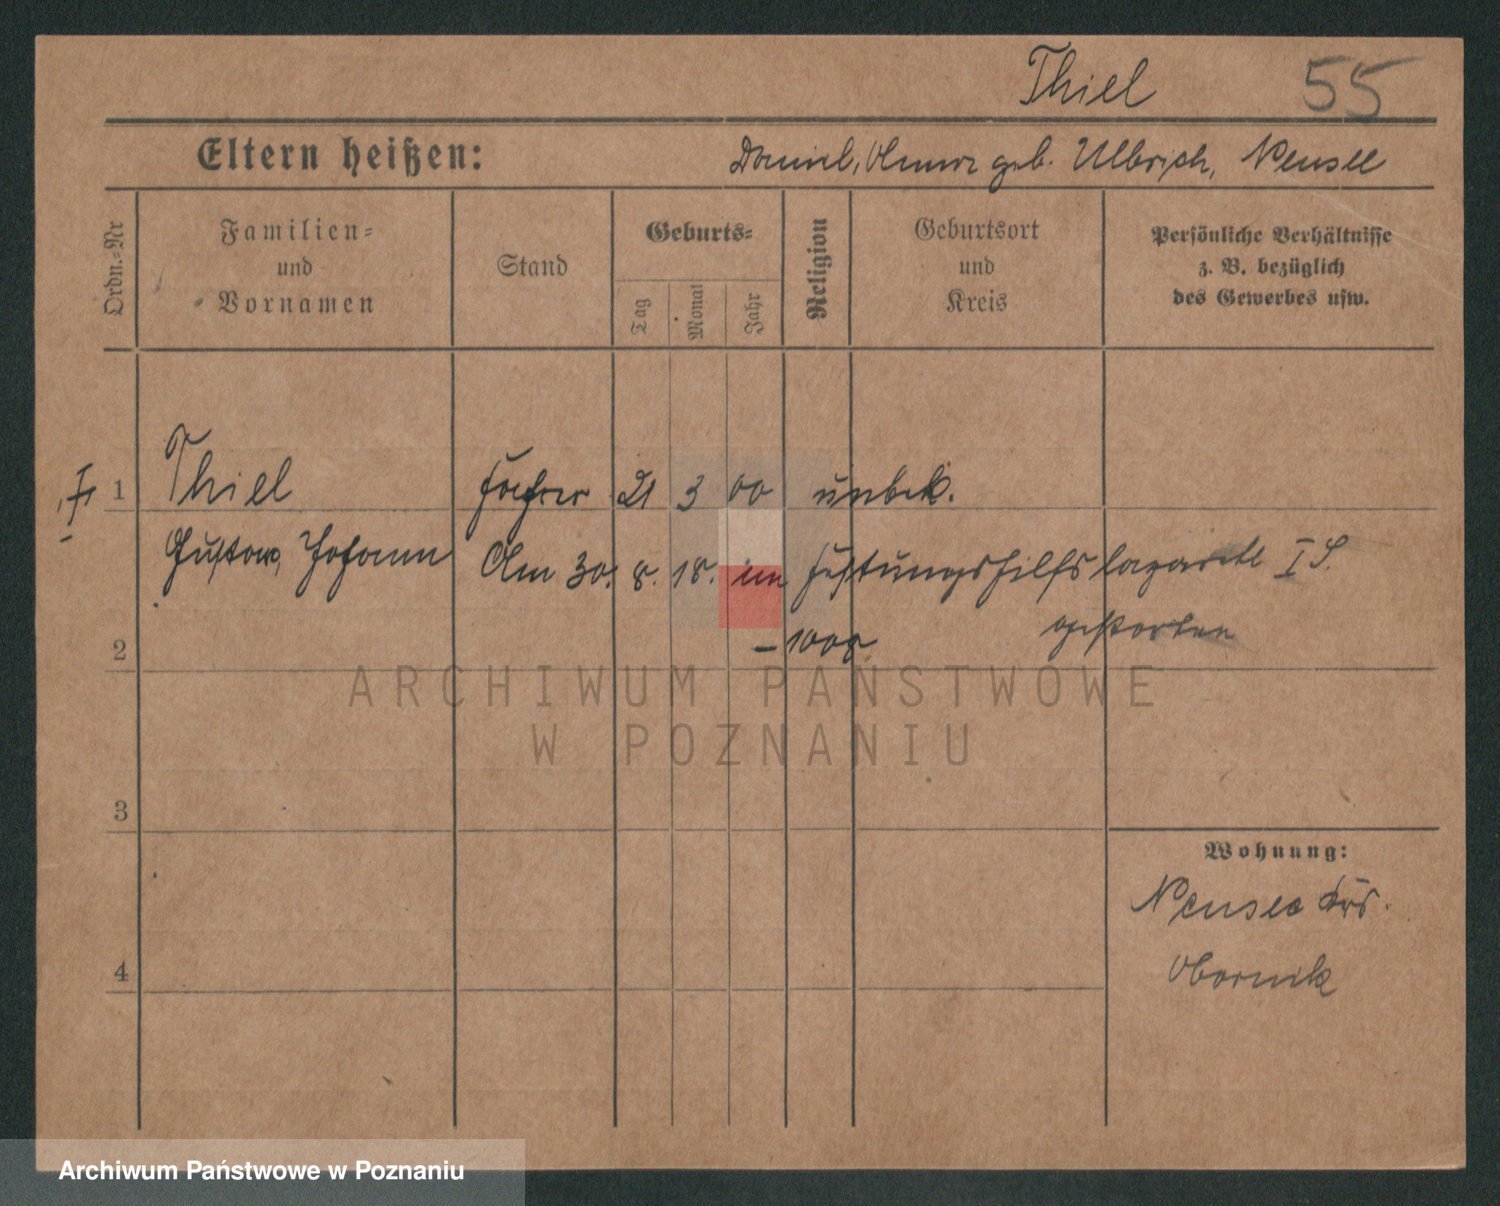 Thiel 55
Eltern heißen: Daniel, Anna geb. Ulbrich, Neusee
Ordn.-Nr
Familien-
und
Vornamen
Stand
Geburts-
Tag
Monat
Jahr
Religion
Geburtsort
und
Kreis
Persönliche Verhältnisse
z. B. bezüglich
des Gewerbes usw.
1 Thiel 21 3 00 unbek.
Gustav, Johann Am 30. 8. 18. im Festungshilfslazarett I S.
2 gestorben
3
4
Wohnung:
Neusee Krs.
Obornik
ARCHIWUM PAŃSTWOWE
W POZNANIU
Archiwum Państwowe w Poznaniu